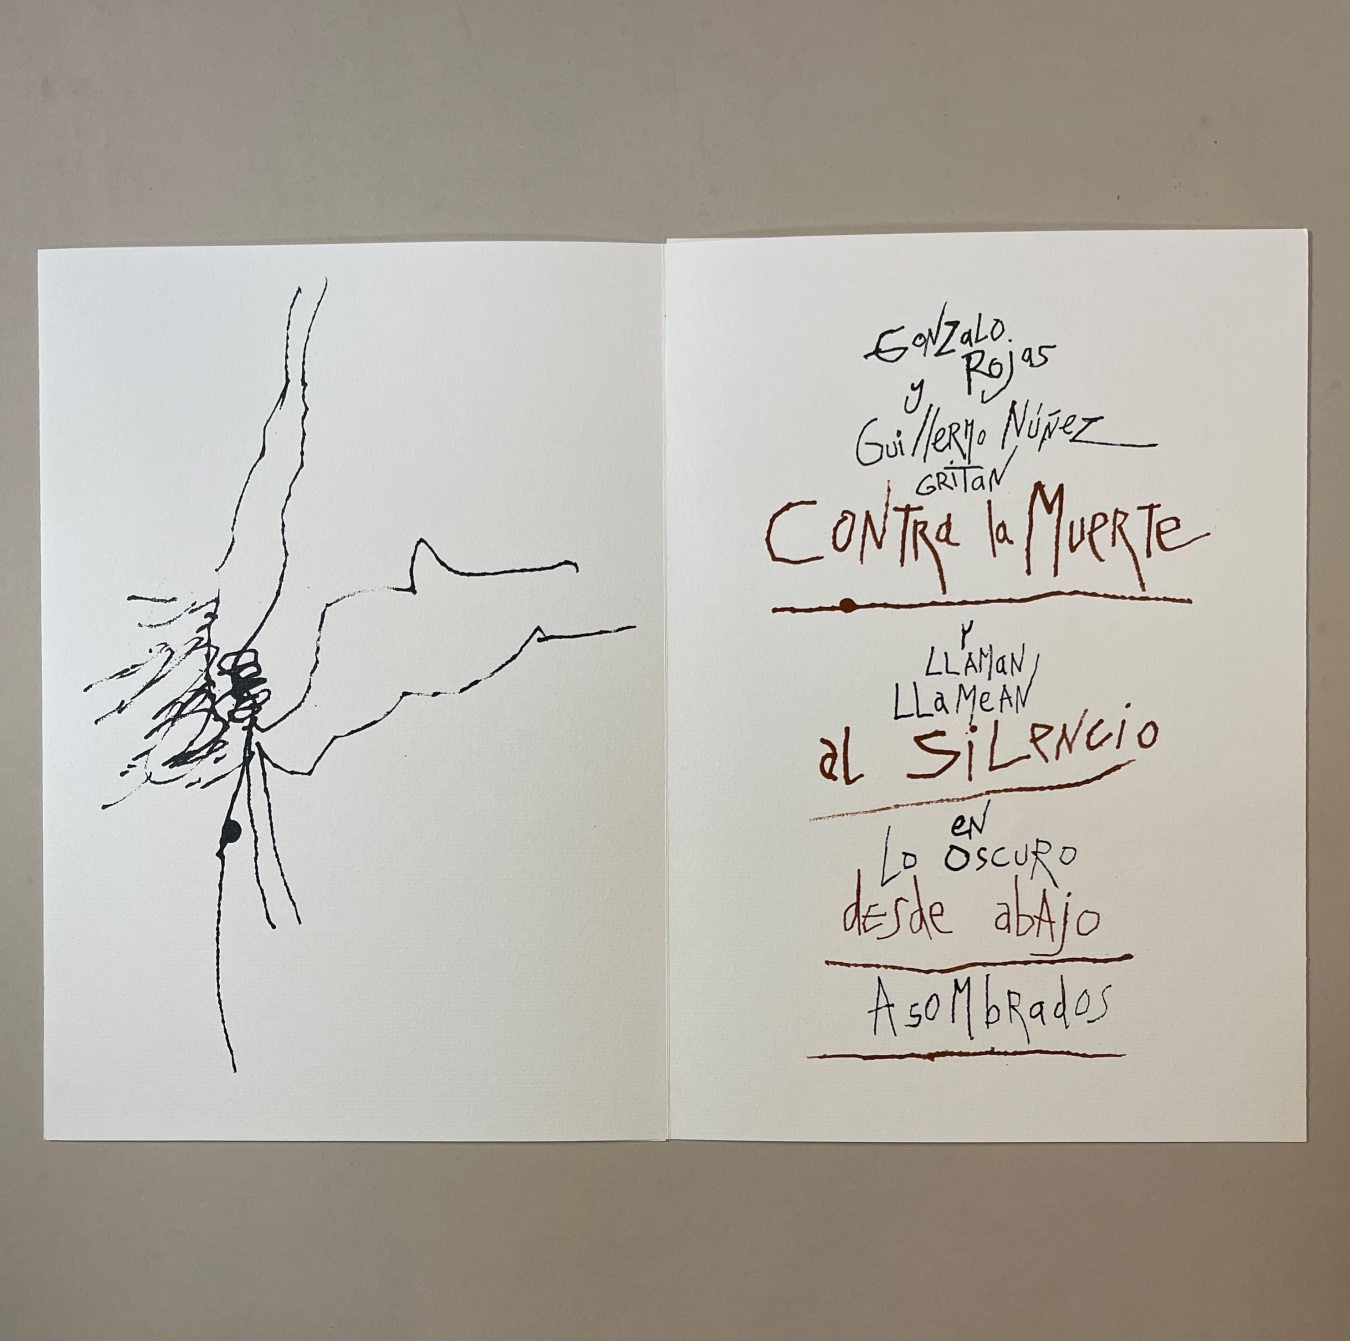 Gonzalo
Rojas
y
Guillermo Núñez
GRITAN
CONTRA la MUERTE
Y
LLAMAN
LLAMEAN
al SiLENCiO
EN
LO OSCURO
desde abAjo
ASOMbRados